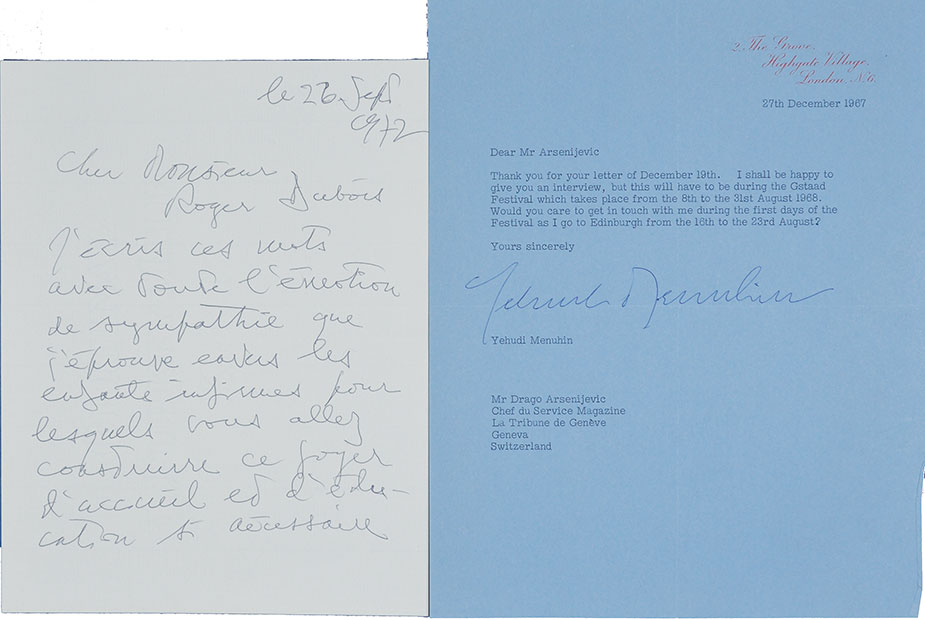 le 26 Sept
1972
Cher Monsieur
Roger Dubois
J'écris ces mots
avec toute l'émotion
de sympathie que
j'éprouve envers les
enfants infirmes pour
lesquels vous allez
construire ce foyer
d'accueil et d'édu-
cation si nécessaire
2, The Grove,
Highgate Village,
London, N.6.
27th December 1967
Dear Mr Arsenijevic
Thank you for your letter of December 19th. I shall be happy to
give you an interview, but this will have to be during the Gstaad
Festival which takes place from the 8th to the 31st August 1968.
Would you care to get in touch with me during the first days of the
Festival as I go to Edinburgh from the 16th to the 23rd August?
Yours sincerely
Yehudi Menuhin
Yehudi Menuhin
Mr Drago Arsenijevic
Chef du Service Magazine
La Tribune de Genève
Geneva
Switzerland